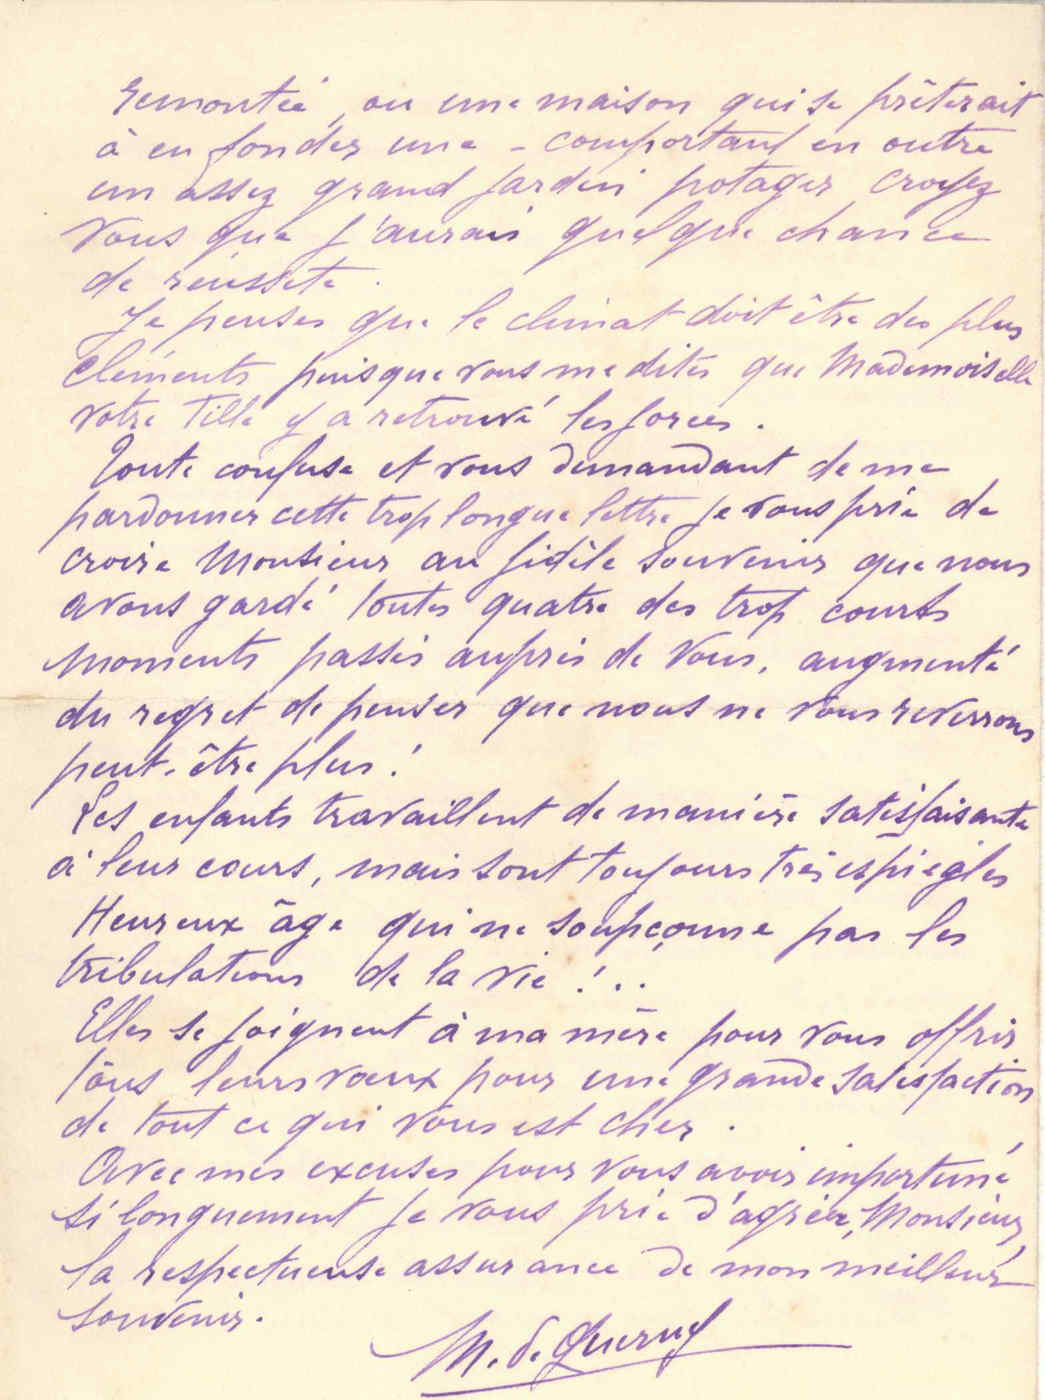 remontée, ou une maison qui se prêterait
à en fonder une - comportant en outre
un assez grand jardin potager croyez
vous que j'aurais quelque chance
de réussite.
Je penses que le climat doit être des plus
cléments puisque vous me dites que Mademoiselle
votre fille y a retrouvé les forces.
Toute confuse et vous demandant de me
pardonner cette trop longue lettre je vous prie de
croire Monsieur au fidèle souvenir que nous
avons gardé toutes quatre des trop courts
moments passés auprès de vous, augmenté
du regret de penser que nous ne vous reverrons
peut-être plus!
Les enfants travaillent de manière satisfaisante
à leur cours, mais sont toujours très espiègles
Heureux âge qui ne soupçonne pas les
tribulations de la vie!..
Elles se joignent à ma mère pour vous offrir
tous leurs vœux pour une grande satisfaction
de tout ce qui vous est cher.
Avec mes excuses pour vous avoir importuné
si longuement je vous prie d'agréer, Monsieur,
la respectueuse assurance de mon meilleur
souvenir.
M. de